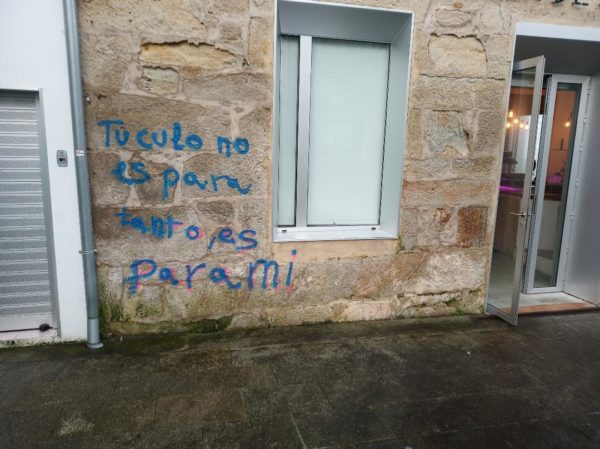 Tu culo no
es para
tanto, es
para mi